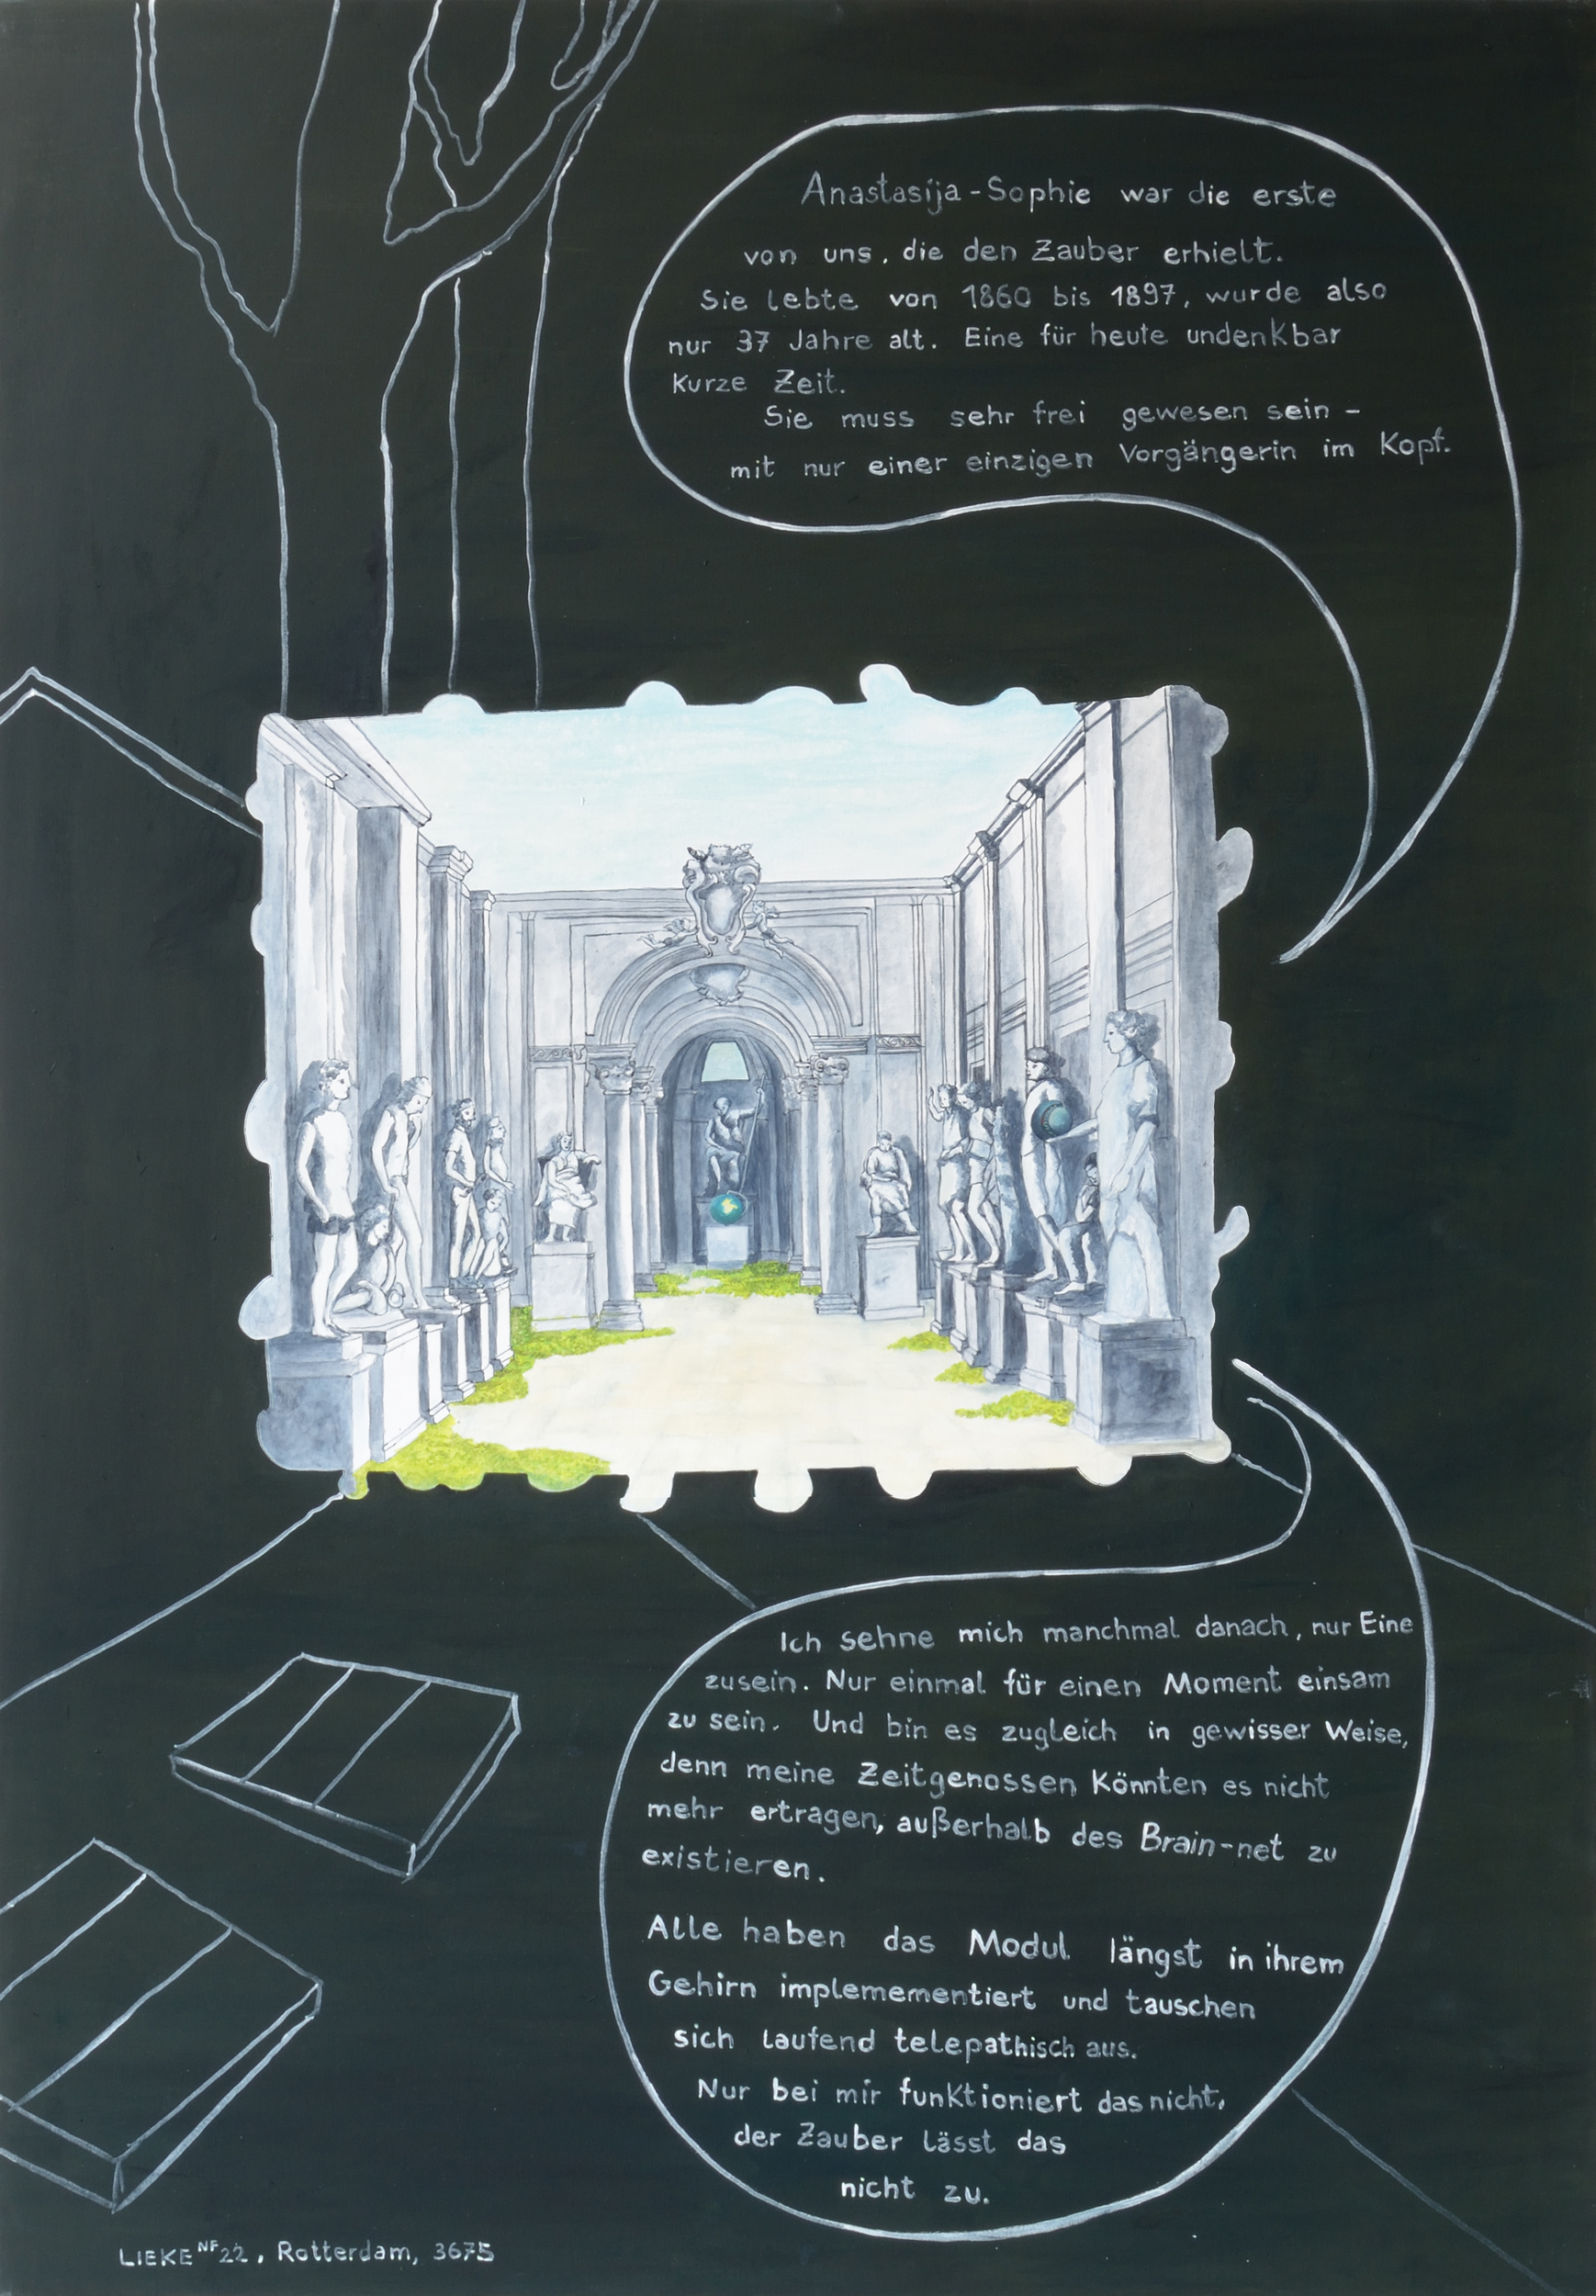 Anastasija-Sophie war die erste
von uns, die den Zauber erhielt.
Sie lebte von 1860 bis 1897, wurde also
nur 37 Jahre alt. Eine für heute undenkbar
kurze Zeit.
Sie muss sehr frei gewesen sein -
mit nur einer einzigen Vorgängerin im Kopf.
Ich sehne mich manchmal danach, nur Eine
zusein. Nur einmal für einen Moment einsam
zu sein. Und bin es zugleich in gewisser Weise,
denn meine Zeitgenossen könnten es nicht
mehr ertragen, außerhalb des Brain-net zu
existieren.
Alle haben das Modul längst in ihrem
Gehirn implemementiert und tauschen
sich laufend telepathisch aus.
Nur bei mir funktioniert das nicht,
der Zauber lässt das
nicht zu.
LIEKE NF22, Rotterdam, 3675